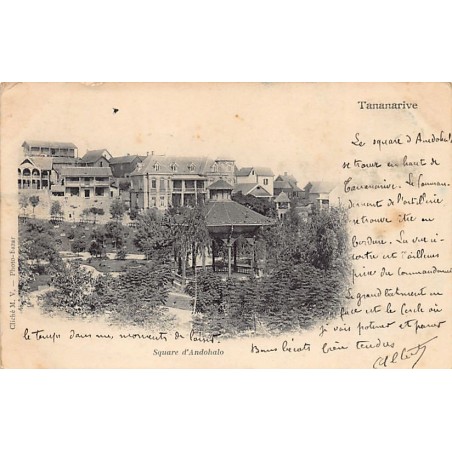 Tananarive
Le square d'Andohalo
se trouve en haut de
Tananarive. Le comman
dement de l'artillerie
se trouve être en
bordure. La vue ci-
contre est d'ailleurs
prise du commandement
Le grand bâtiment en
face est le Cercle où
je vais potiner et passer
le temps dans mes moments de loisir.
Bons bécots bien tendres
Albert
Square d'Andohalo
Cliché M. V. - Photo-Lazar